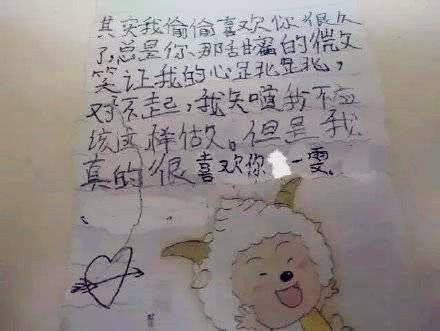 其实我偷偷喜欢你很久
了,总是你那甜蜜的微
笑让我的心跳跳,
对不起,我知道我不应
该这样做。但是我
真的很喜欢你 一雯.